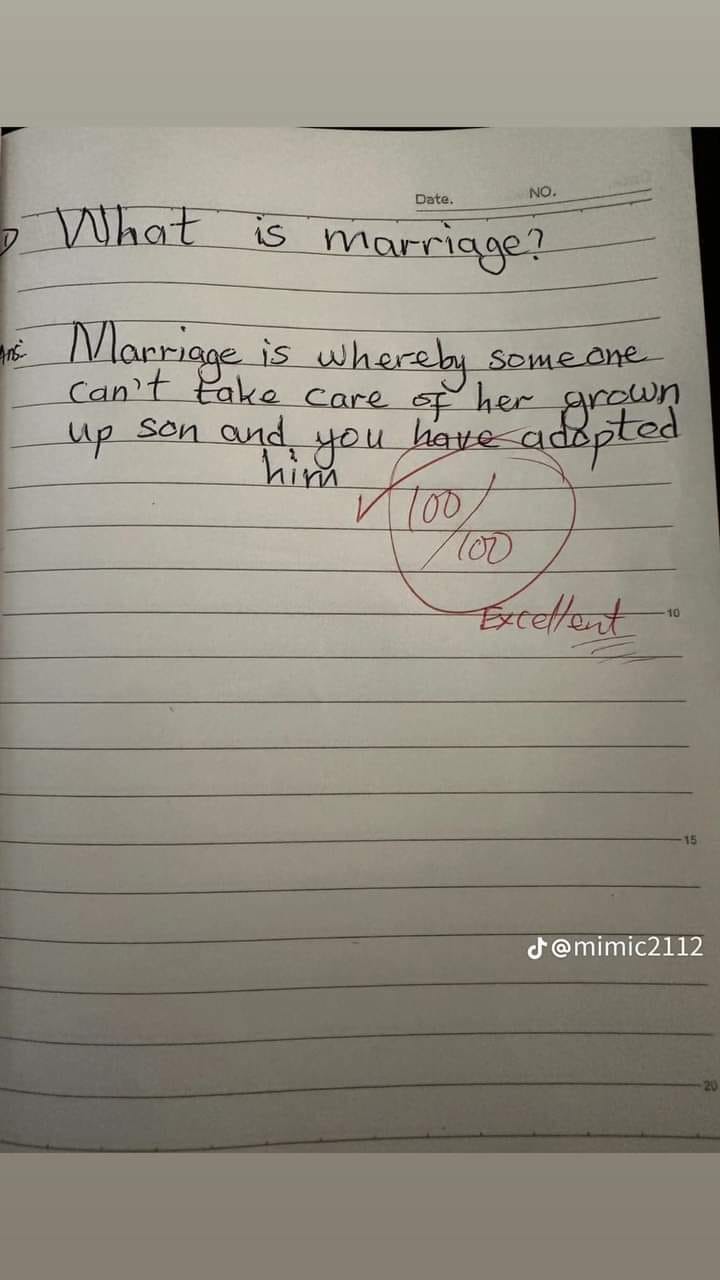 Date. NO.
1) What is marriage?
Ans:- Marriage is whereby someone
can't take care of her grown
up son and you have adopted
him
100/100
Excellent
10
15
@mimic2112
20